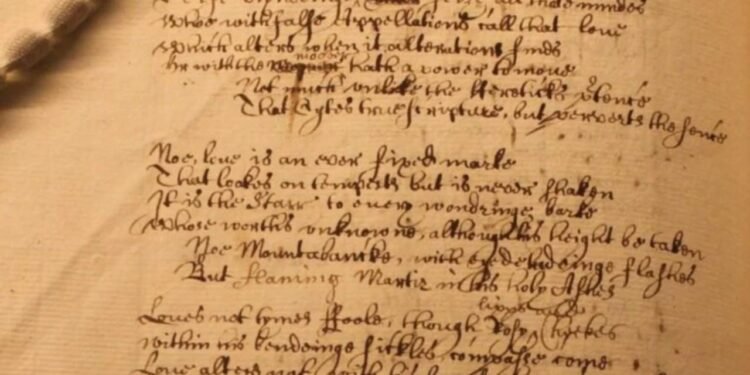 minds
Who with false Appellations call that love
Which alters when it alterations finds
Or with the mover hath a power to move
Not much unlike the Hereticks p'tence
That Cytes true Scripture, but perverts the sence
Noe, love is an ever fixed marke
That lookes on tempests but is never shaken
It is the Starr to every wandringe barke
Whose worths unknowne, although his height be taken
Noe Mountabancke, with eyedeludeinge flashes
But flaming Martir in his holy Ashes
Loves not tymes ffoole, though Rosy lipps and Cheekes
within his bendeinge sickles compasse come
Love alters not with his